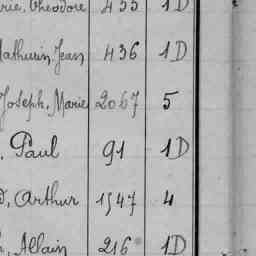 rie, Théodore 433 1D
Mathurin, Jean 436 1D
Joseph, Marie 2067 5
Paul 91 1D
Arthur 1547 4
Allain 216 1D